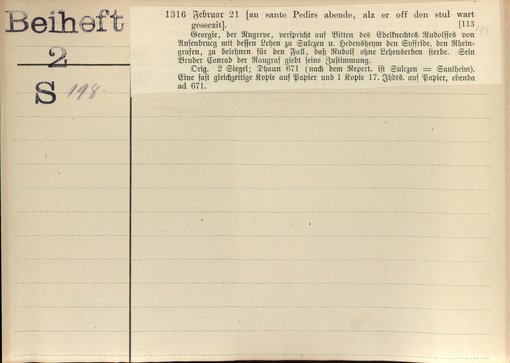 Beiheft
2
S 198
1316 Februar 21 [an sante Pedirs abende, alz er off den stul wart
geseczit]. [113
Georgie, der Rugreve, verspricht auf Bitten des Edelknechtes Rudolffes von
Ansenbrucg mit dessen Lehen zu Sulczen u. Hedensheym den Syffride, den Rhein-
grafen, zu belehnen für den Fall, daß Rudolf ohne Lehenserben sterbe. Sein
Bruder Conrad der Raugraf giebt seine Zustimmung.
Orig. 2 Siegel; Dhaun 671 (nach dem Repert. ist Sulczen = Saulheim).
Eine fast gleichzeitige Kopie auf Papier und 1 Kopie 17. Jhdts. auf Papier, ebenda
ad 671.